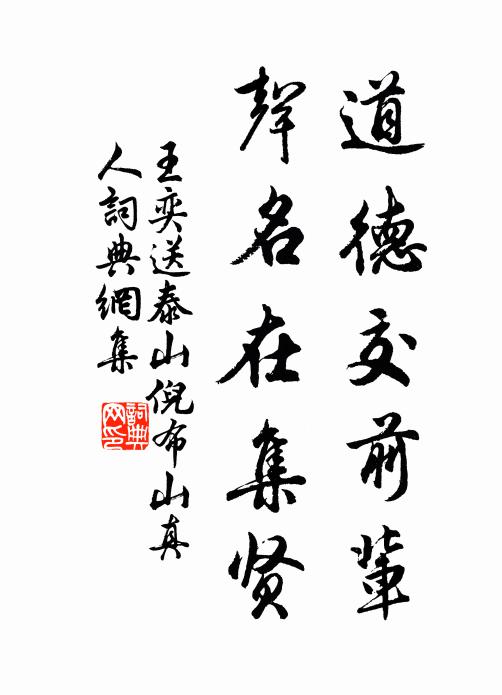 道德交前輩
聲名在集贤
王奕送泰山倪布山真
人詞典網集
詞典网印